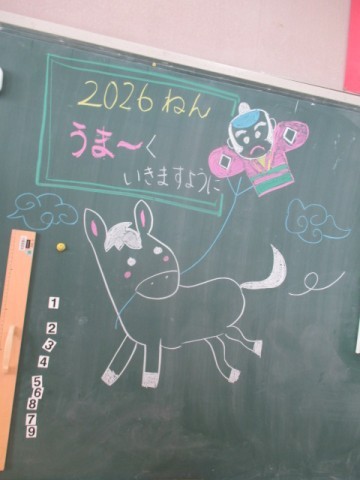 2026ねん
うま〜く
いきますように
1
2
3
4
5
6
8
7
9